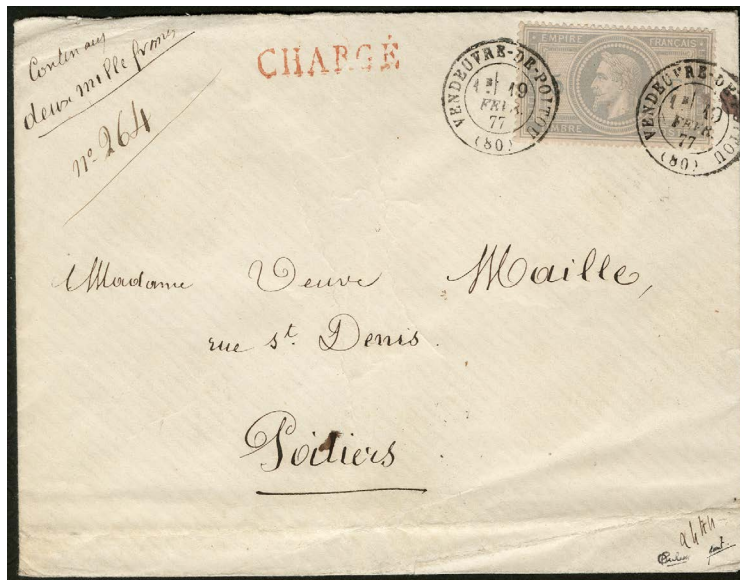 Contenant
deux mille francs
n° 264
CHARGÉ
VENDEUVRE-DE-POITOU
1E 19
FEVR.
77
(80)
EMPIRE FRANÇAIS
VENDEUVRE-DE-POITOU
1E 19
FEVR.
77
(80)
Madame Veuve Maille,
rue st. Denis.
Poitiers